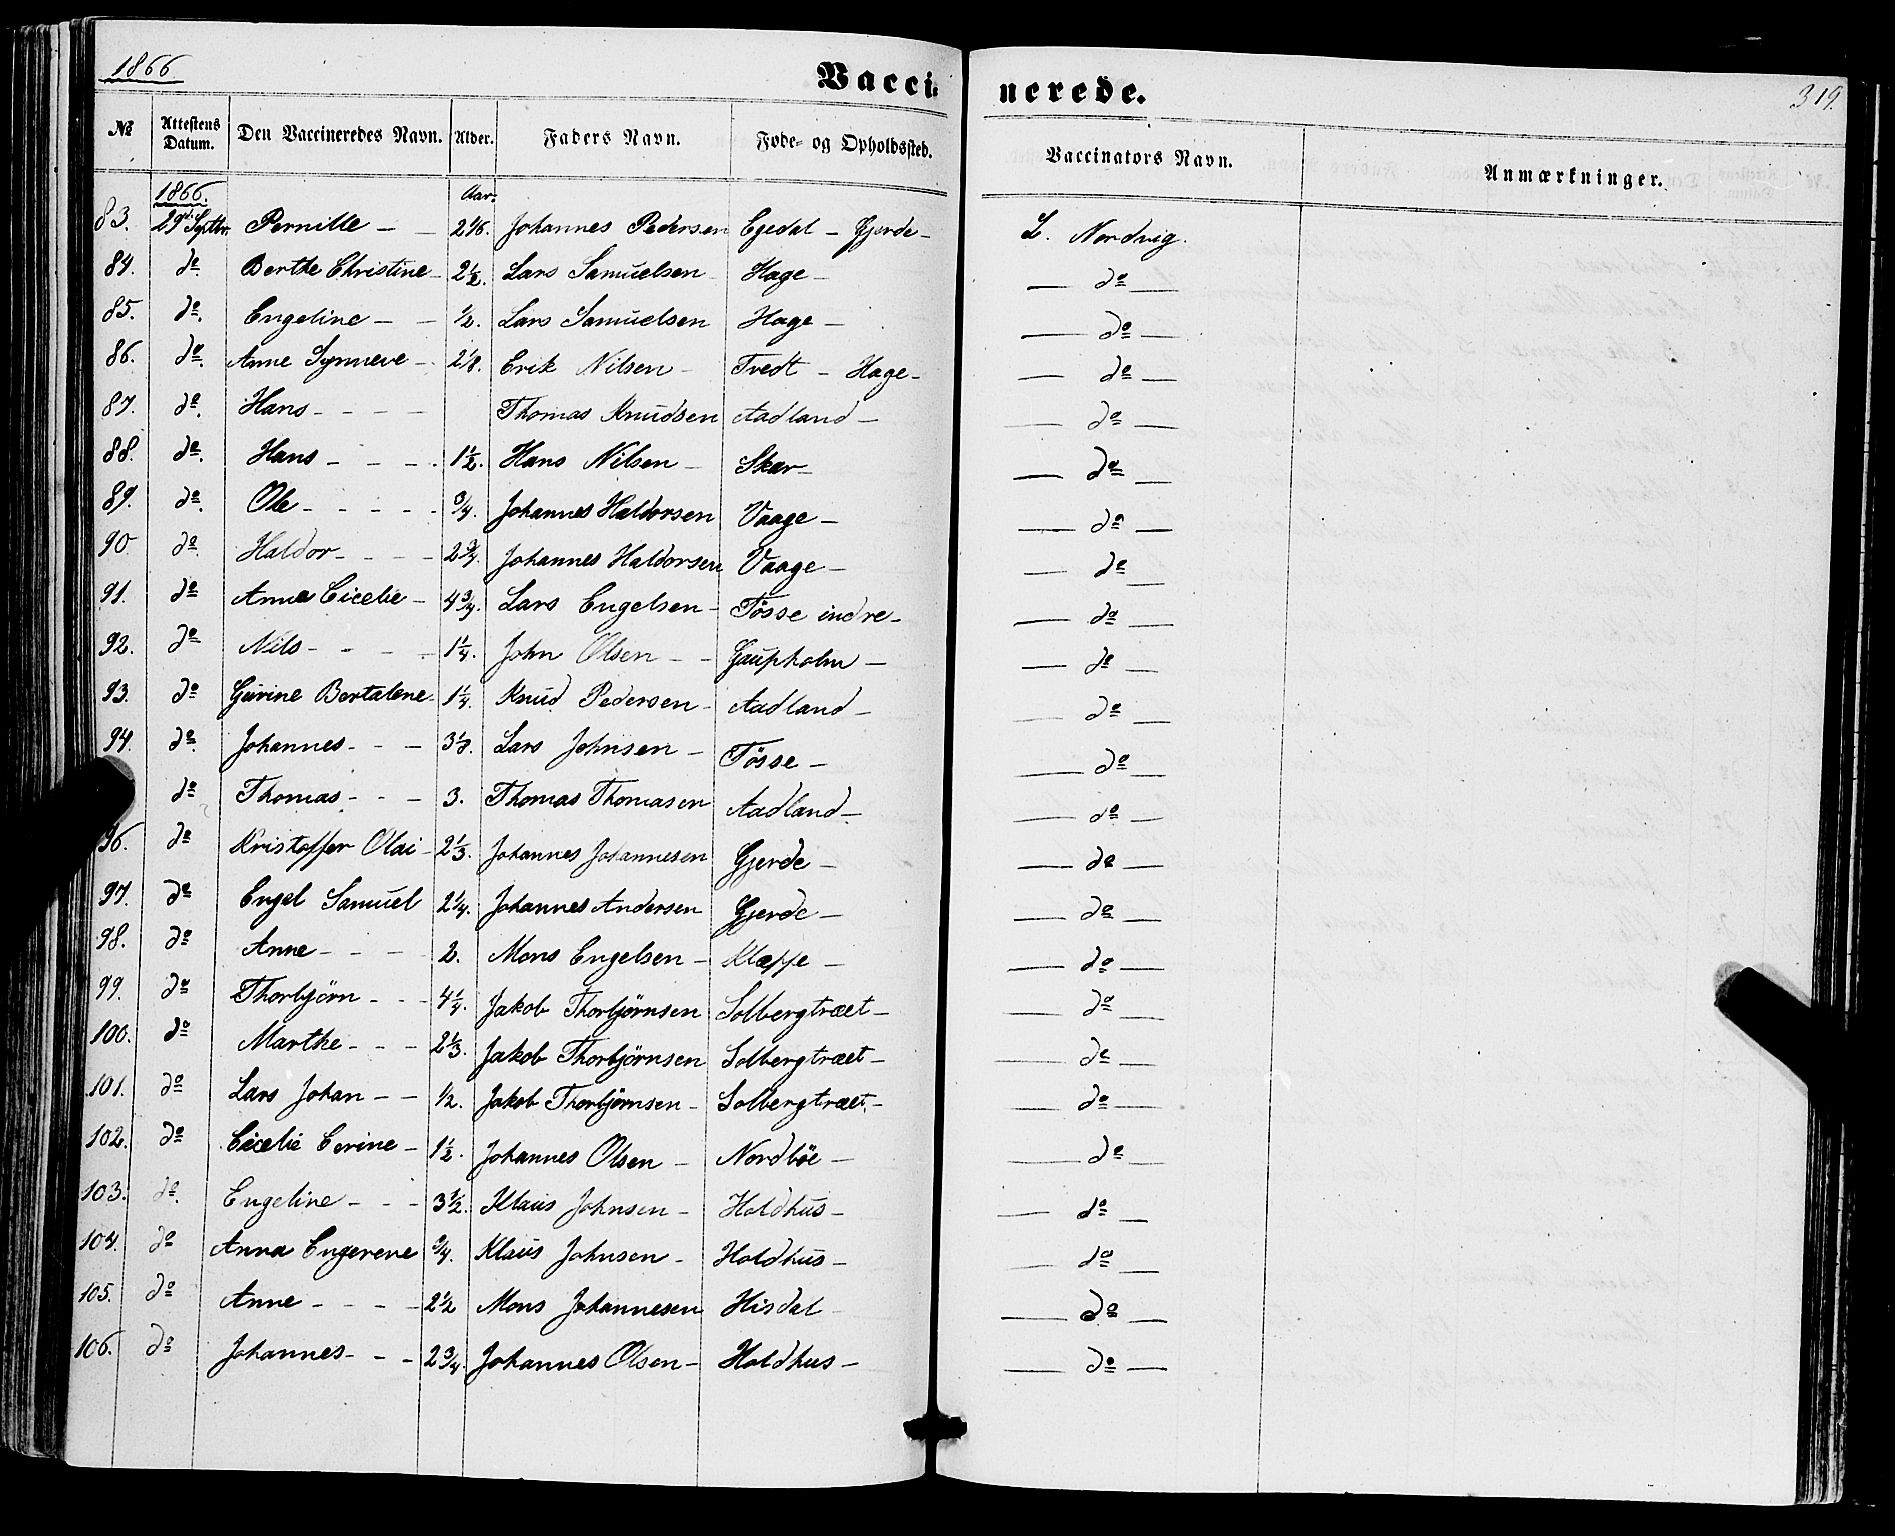 1866
Vacci= nerede.
319.
№ Attestens Datum. Den Vaccineredes Navn. Alder. Faders Navn. Føde- og Opholdssted. Vaccinators Navn. Anmærkninger.
1866. Aar.
83. 29de Septbr. Pernille - - 2 1/6. Johannes Pedersen Egedal - Gjerde - L. Nordvig.
84. do Berthe Christine - 2 1/2. Lars Samuelsen Hage - — do —
85. do. Engeline - - 1/2. Lars Samuelsen Hage - — do —
86. do. Anne Synneve - 2 1/8. Erik Nilsen - Tvedt - Hage - — do —
87. do. Hans - - - - Thomas Knudsen Aadland - — do —
88. do. Hans - - - - 1 1/2. Hans Nilsen - Skar - — do —
89. do. Ole - - - - - 3/4. Johannes Haldorsen Vaage - — do —
90. do. Haldor - - - - 2 3/4. Johannes Haldorsen Vaage - — do —
91. do Anna Cicelie - 4 3/4. Lars Engelsen - Tösse indre - — do —
92. do Nils - - - - 1 1/4. John Olsen - - Gaupholm - — do —
93. do Gurine Bertalene - 1 1/4. Knud Pedersen - Aadland - — do —
94. do. Johannes - - - 3 1/8. Lars Johnsen - Tösse - — do —
do Thomas - - - 3. Thomas Thomasen Aadland - — do —
96. do Kristoffer Olai - 2 1/3. Johannes Johannesen Gjerde - — do —
97. do Engel Samuel 2 1/4. Johannes Andersen Gjerde - — do —
98. do Anne - - - 2. Mons Engelsen - Kleppe - — do —
99. do Thorbjörn - - - 4 1/4. Jakob Thorbjörnsen Solbergtræet - — do —
100. do Marthe - - - 2 1/3. Jakob Thorbjörnsen Solbergtræet - — do —
101. do Lars Johan - - 1/2. Jakob Thorbjörnsen - Solbergtræet - — do —
102. do Cicelie Cerine - 1 1/2. Johannes Olsen - Nordböe - — do —
103. do. Engeline - - - 3 1/2. Klaus Johnsen - Holdhus - — do —
104. do Anna Engerene 3/4. Klaus Johnsen - Holdhus - — do —
105. do Anne - - - - 2 1/2 Mons Johannesen Hisdal — do —
106. do Johannes - - - 2 3/4. Johannes Olsen - Holdhus - — do —